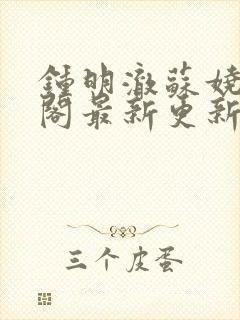 鍾明澈蘇嬈
閣最新更新
三个皮蛋